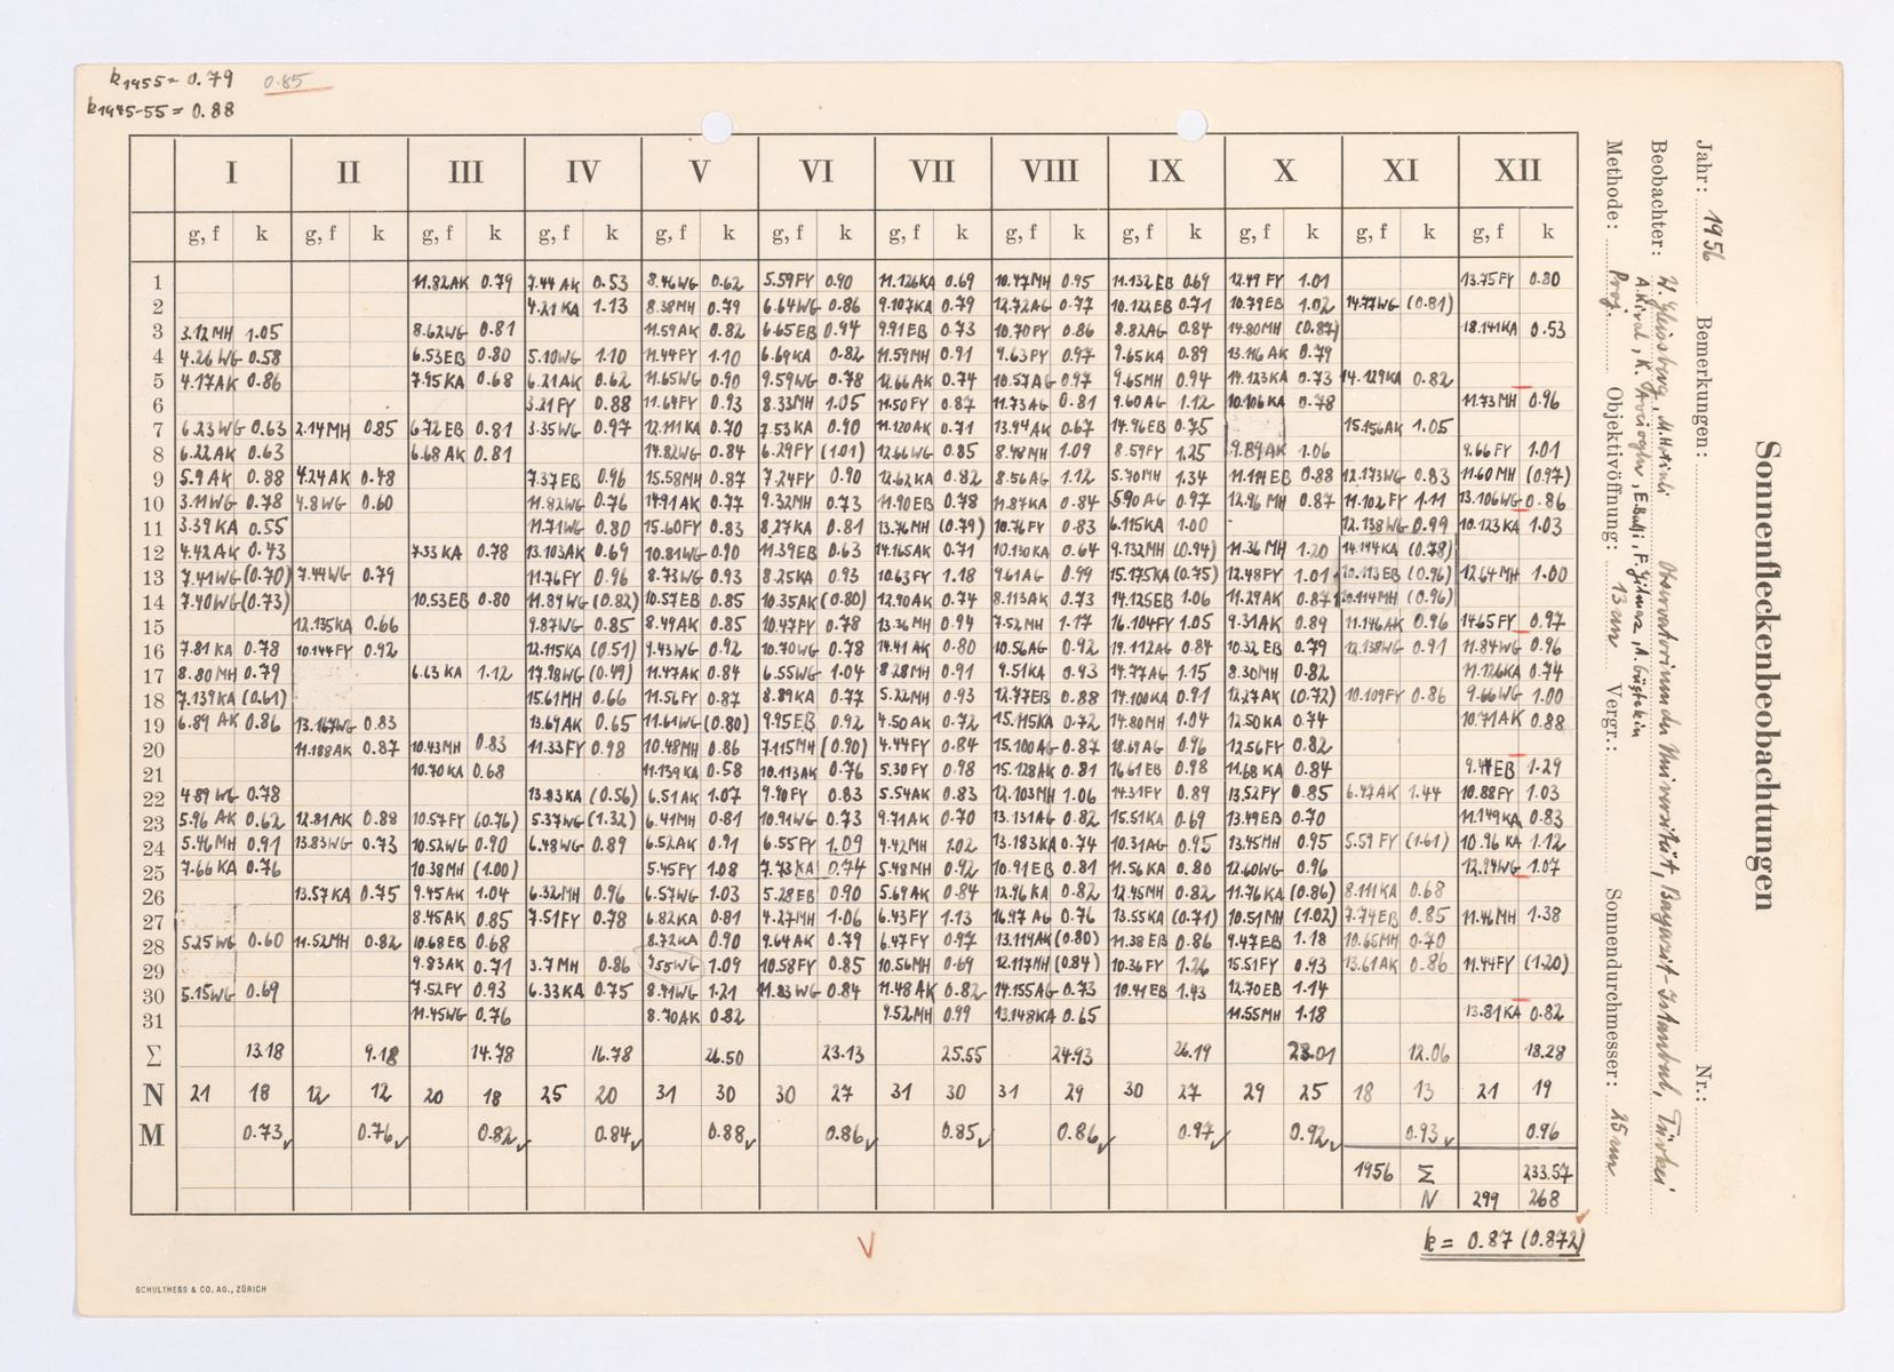 k1955= 0.79 0.85
k1945-55= 0.88
I II III IV V VI VII VIII IX X XI XII
g, f k g, f k g, f k g, f k g, f k g, f k g, f k g, f k g, f k g, f k g, f k g, f k
1 11.82AK 0.79 7.44 AK 0.53 8.46WG 0.62 5.59FY 0.90 11.126KA 0.69 10.47MH 0.95 11.132 EB 0.69 12.49 FY 1.01 13.75FY 0.80
2 4.21 KA 1.13 8.38MH 0.79 6.64WG 0.86 9.107KA 0.79 12.72AG 0.77 10.122EB 0.71 10.79EB 1.02 14.77WG (0.81)
3 3.12MH 1.05 8.62WG 0.81 11.59AK 0.82 6.65EB 0.94 9.91EB 0.73 10.70FY 0.86 8.82AG 0.84 14.80MH (0.87) 18.141KA 0.53
4 4.26 WG 0.58 6.53EB 0.80 5.10WG 1.10 11.44FY 1.10 6.69KA 0.82 11.59MH 0.91 9.63FY 0.97 9.65KA 0.89 13.116AK 0.79
5 4.17AK 0.86 7.95KA 0.68 6.21AK 0.62 11.65WG 0.90 9.59WG 0.78 12.66AK 0.74 10.57AG 0.97 9.65MH 0.94 14.123KA 0.73 14.129KA 0.82
6 3.21FY 0.88 11.69FY 0.93 8.33MH 1.05 11.50FY 0.87 11.73AG 0.81 9.60AG 1.12 10.106KA 0.78 11.73MH 0.96
7 6.23WG 0.63 2.14MH 0.85 6.72EB 0.81 3.35WG 0.97 12.111KA 0.70 7.53KA 0.90 11.120AK 0.71 13.94AK 0.67 14.96EB 0.75 15.156AK 1.05
8 6.22AK 0.63 6.68AK 0.81 14.82WG 0.84 6.29FY (1.01) 12.66WG 0.85 8.48MH 1.09 8.59FY 1.25 9.89AK 1.06 9.66FY 1.01
9 5.9 AK 0.88 4.24AK 0.48 7.37EB 0.96 15.58MH 0.87 7.24FY 0.90 12.62KA 0.82 8.56AG 1.12 5.70MH 1.34 11.114EB 0.88 12.173WG 0.83 11.60MH (0.97)
10 3.11WG 0.78 4.8WG 0.60 11.82WG 0.76 14.91AK 0.77 9.32MH 0.73 11.90EB 0.78 11.87KA 0.84 5.90AG 0.97 12.96MH 0.87 11.102FY 1.11 13.106WG 0.86
11 3.39KA 0.55 11.71WG 0.80 15.60FY 0.83 8.27KA 0.81 13.76MH (0.79) 10.76FY 0.83 6.115KA 1.00 12.138WG 0.99 10.123KA 1.03
12 4.42AK 0.43 7.33KA 0.78 13.103AK 0.69 10.81WG 0.90 11.39EB 0.63 14.165AK 0.71 10.130KA 0.64 9.132MH (0.94) 11.36MH 1.20 14.194KA (0.78)
13 7.41WG (0.70) 7.44WG 0.79 11.76FY 0.96 8.73WG 0.93 8.25KA 0.93 10.63FY 1.18 9.61AG 0.99 15.175KA (0.75) 12.48FY 1.01 10.113EB (0.96) 12.64MH 1.00
14 7.40WG (0.73) 10.53EB 0.80 11.89WG (0.82) 10.57EB 0.85 10.35AK (0.80) 12.90AK 0.74 8.113AK 0.73 14.125EB 1.06 11.29AK 0.87 10.114MH (0.96)
15 12.135KA 0.66 9.87WG 0.85 8.49AK 0.85 10.47FY 0.78 13.36MH 0.94 7.52MH 1.17 16.104FY 1.05 9.31AK 0.89 11.146AK 0.96 14.65FY 0.97
16 7.81KA 0.78 10.144FY 0.92 12.115KA (0.51) 9.43WG 0.92 10.70WG 0.78 14.41AK 0.80 10.56AG 0.92 19.112AG 0.84 10.32EB 0.79 12.138WG 0.91 11.84WG 0.96
17 8.80MH 0.79 6.63KA 1.12 17.98WG (0.49) 11.47AK 0.84 6.55WG 1.04 8.28MH 0.91 9.51KA 0.93 14.77AG 1.15 8.30MH 0.82 11.126KA 0.74
18 7.139KA (0.61) 15.61MH 0.66 11.56FY 0.87 8.89KA 0.77 5.22MH 0.93 12.77EB 0.88 14.100KA 0.91 12.27AK (0.72) 10.109FY 0.86 9.66WG 1.00
19 6.89AK 0.86 13.167WG 0.83 13.69AK 0.65 11.61WG (0.80) 9.95EB 0.92 4.50AK 0.72 15.115KA 0.72 14.80MH 1.04 12.50KA 0.74 10.71AK 0.88
20 11.188AK 0.87 10.43MH 0.83 11.33FY 0.98 10.48MH 0.86 7.115MH (0.90) 4.44FY 0.84 15.100AG 0.87 18.69AG 0.96 12.56FY 0.82
21 10.70KA 0.68 11.139KA 0.58 10.113AK 0.76 5.30FY 0.98 15.128AK 0.81 16.61EB 0.98 11.68KA 0.84 9.44EB 1.29
22 4.89WG 0.78 13.83KA (0.56) 6.51AK 1.07 9.90FY 0.83 5.54AK 0.83 12.103MH 1.06 14.31FY 0.89 13.52FY 0.85 6.42AK 1.44 10.88FY 1.03
23 5.96AK 0.62 12.81AK 0.88 10.57FY (0.76) 5.37WG (1.32) 6.41MH 0.81 10.91WG 0.73 9.71AK 0.70 13.131AG 0.82 15.51KA 0.69 13.49EB 0.70 11.149KA 0.83
24 5.46MH 0.91 13.83WG 0.73 10.52WG 0.90 6.48WG 0.89 6.52AK 0.91 6.55FY 1.09 9.42MH 1.02 13.183KA 0.74 10.31AG 0.95 13.45MH 0.95 5.59FY (1.61) 10.96KA 1.12
25 7.66KA 0.76 10.38MH (1.00) 5.45FY 1.08 7.73KA 0.74 5.48MH 0.92 10.91EB 0.81 11.56KA 0.80 12.60WG 0.96 12.94WG 1.07
26 13.57KA 0.75 9.45AK 1.04 6.32MH 0.96 6.57WG 1.03 5.28EB 0.90 5.69AK 0.84 12.96KA 0.82 12.45MH 0.82 11.76KA (0.86) 8.111KA 0.68
27 8.45AK 0.85 7.51FY 0.78 6.82KA 0.81 4.27MH 1.06 6.43FY 1.13 16.97AG 0.76 13.55KA (0.71) 10.51MH (1.02) 7.74EB 0.85 11.46MH 1.38
28 5.25WG 0.60 11.52MH 0.82 10.68EB 0.68 8.72KA 0.90 9.64AK 0.79 6.47FY 0.97 13.119AK (0.80) 11.38EB 0.86 9.47EB 1.18 10.65MH 0.70
29 9.83AK 0.71 3.7MH 0.86 7.55WG 1.09 10.58FY 0.85 10.56MH 0.69 12.117MH (0.84) 10.36FY 1.26 15.51FY 0.93 13.61AK 0.86 11.44FY (1.20)
30 5.15WG 0.69 7.52FY 0.93 6.33KA 0.75 8.41WG 1.21 11.83WG 0.84 11.48AK 0.82 14.155AG 0.73 10.41EB 1.43 12.70EB 1.14
31 11.45WG 0.76 8.70AK 0.82 9.52MH 0.99 13.148KA 0.65 11.55MH 1.18 13.81KA 0.82
Σ 13.18 9.18 14.78 16.78 26.50 23.13 25.55 24.93 26.19 23.01 12.06 18.28
N 21 18 12 12 20 18 25 20 31 30 30 27 31 30 31 29 30 27 29 25 18 13 21 19
M 0.73 0.76 0.82 0.84 0.88 0.86 0.85 0.86 0.97 0.92 0.93 0.96
1956 Σ 233.57
N 299 268
k = 0.87 (0.872)
SCHULTHESS & CO. AG., ZÜRICH
Sonnenfleckenbeobachtungen
Jahr: 1956 Bemerkungen: Nr.:
Beobachter: W. Gleissberg, Observatorium der Universität, Bayazit-Istanbul, Türkei
A. Kıral, K. E. Bulji, F. Yilmaz, A.
Methode: Proj. Objektivöffnung: 13 cm Vergr.: Sonnendurchmesser: 25 cm